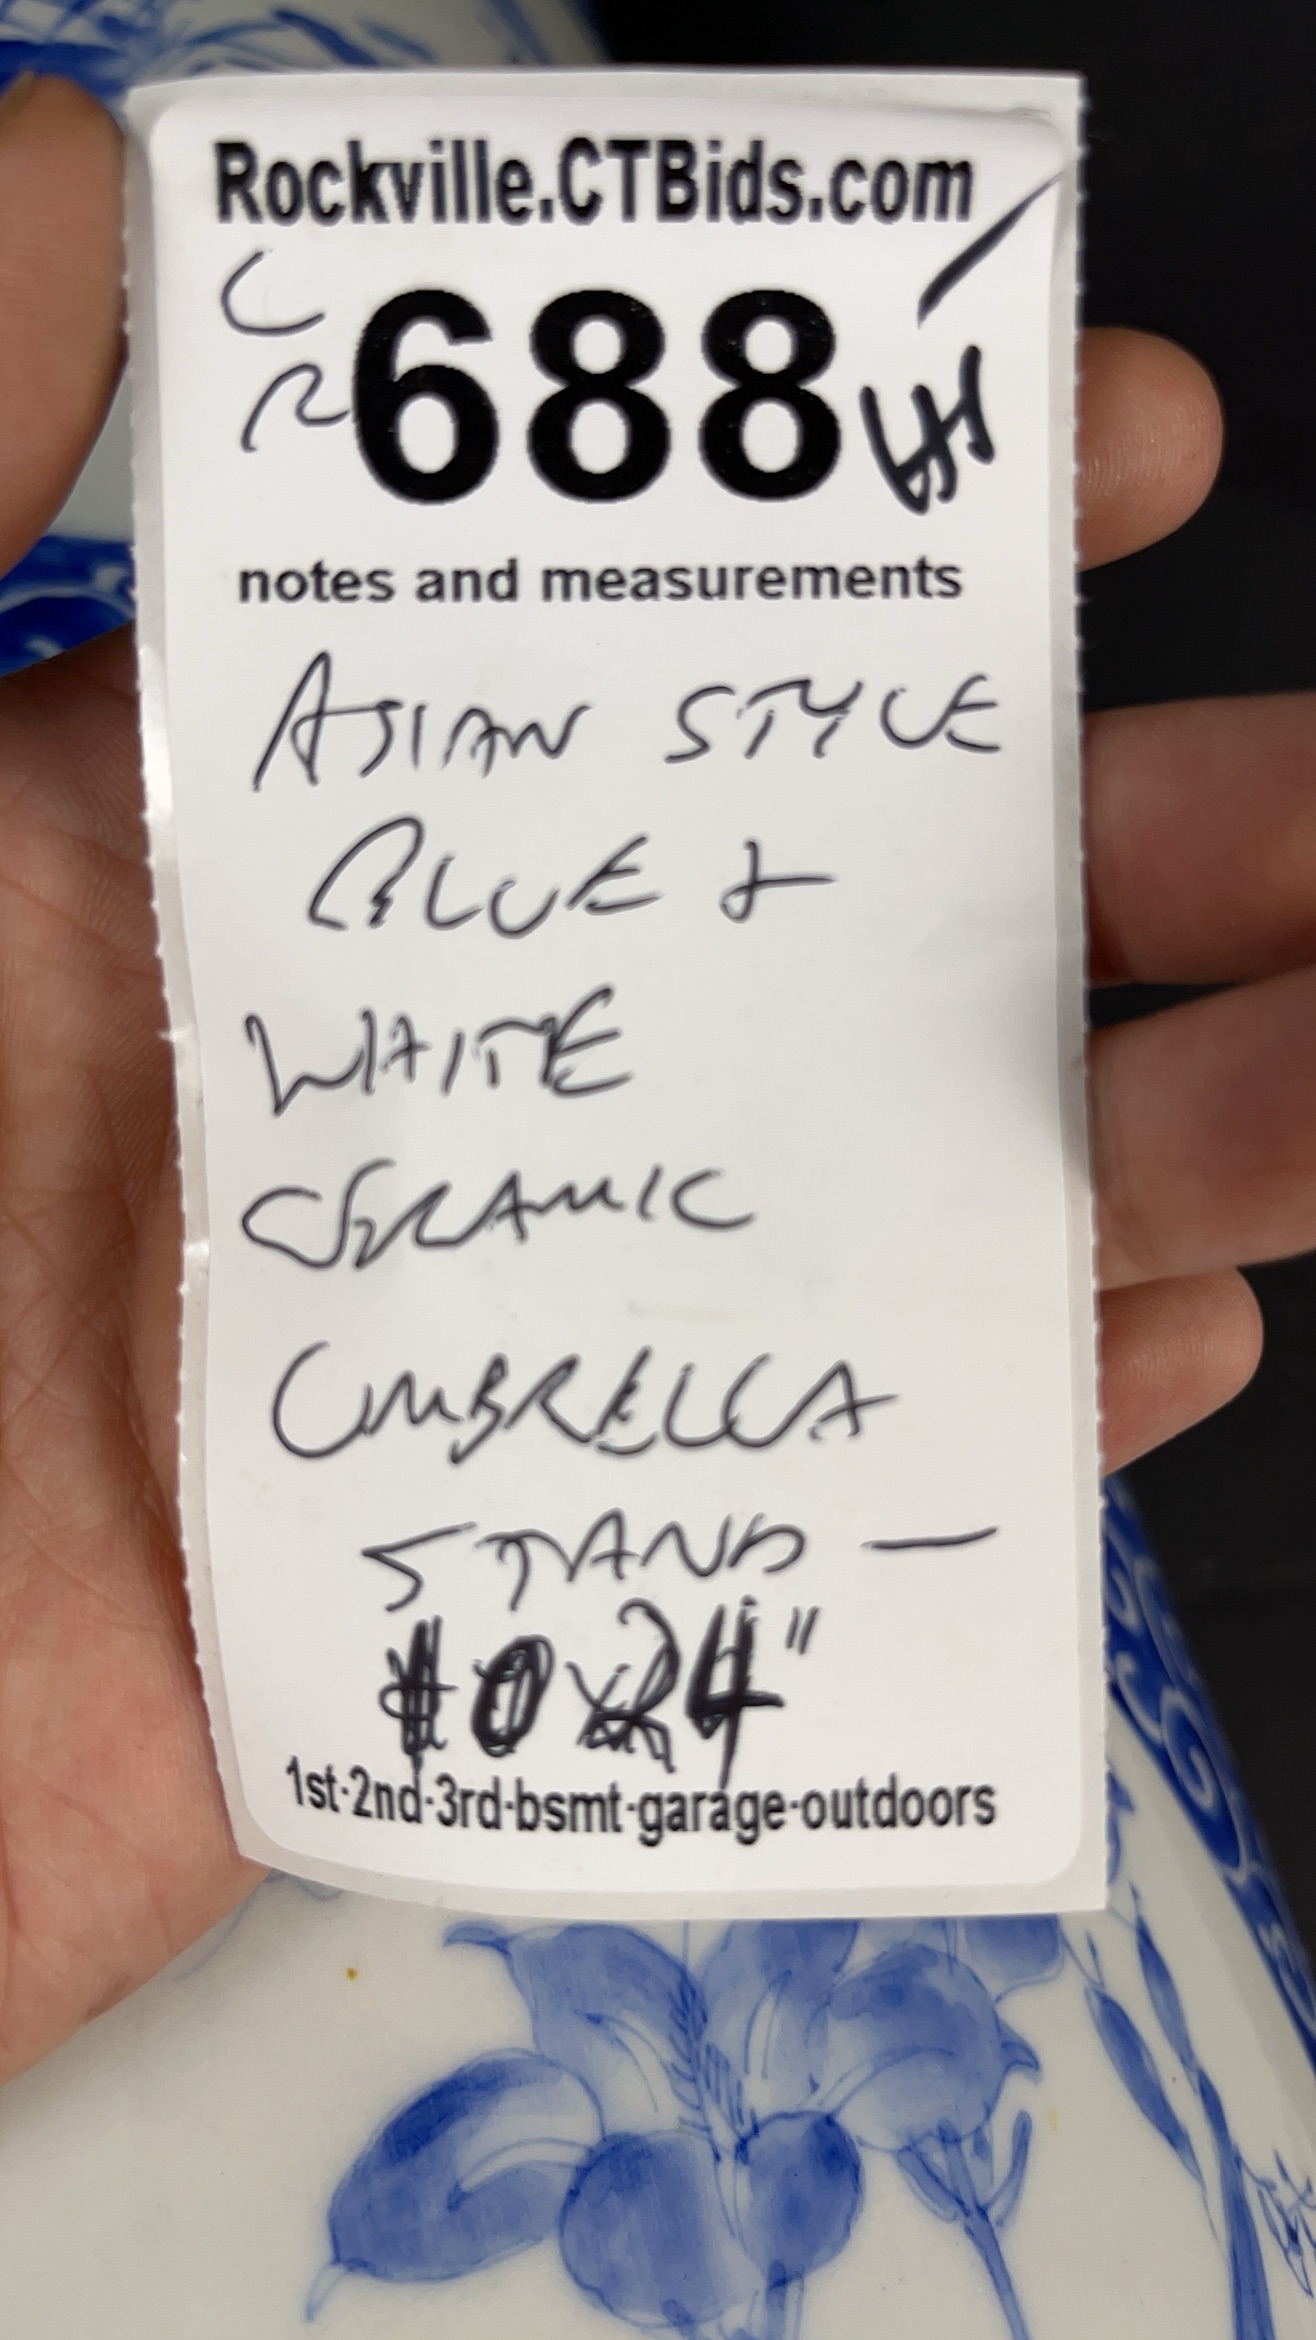 Rockville.CTBids.com
C
R
688
notes and measurements
ASIAN STYLE
BLUE &
WHITE
CERAMIC
UMBRELLA
STAND —
10x24"
1st·2nd·3rd·bsmt·garage·outdoors